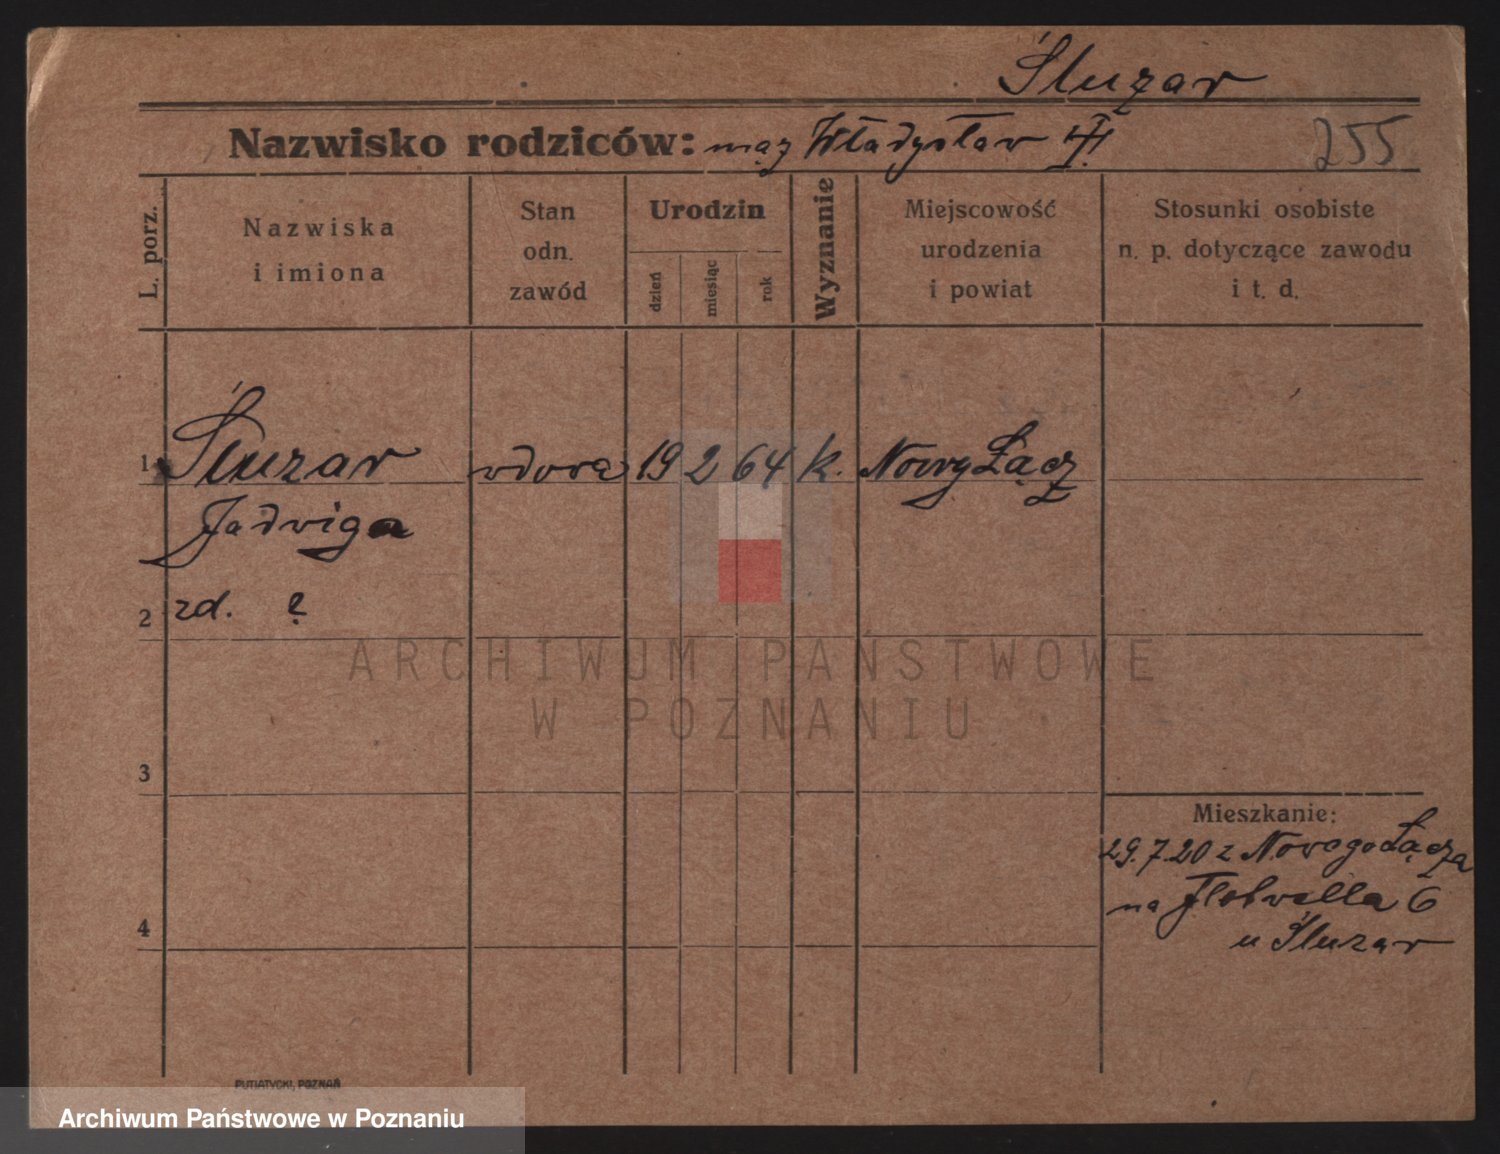 Śluzar
Nazwisko rodziców: mąż Władysław
255
L. porz.
Nazwiska
i imiona
Stan
odn.
zawód
Urodzin
dzień
miesiąc
rok
Wyznanie
Miejscowość
urodzenia
i powiat
Stosunki osobiste
n. p. dotyczące zawodu
i t. d.
1 Śluzar wdowa 19 2 64 k. Nowy Sącz
Jadwiga
2 zd. ?
ARCHIWUM PAŃSTWOWE
W POZNANIU
3
Mieszkanie:
29.7.20 z Nowego Sącza
na Flotwella 6
4
u Śluzar
PUTIATYCKI, POZNAŃ
Archiwum Państwowe w Poznaniu